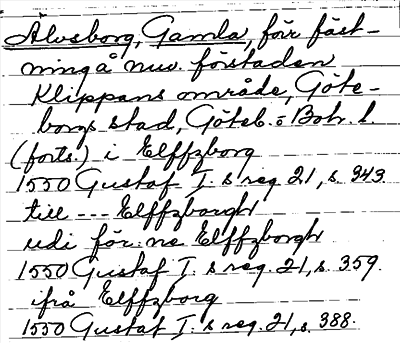 Älvsborg, Gamla, förr fäst-
ning å nuv. förstaden
Klippans område, Göte-
borgs stad, Göteb. o Boh. l.
(forts.) i Elffzborg
1550 Gustaf I. s reg. 21, s. 343.
till --- Elffzborgh
udi för:ne Elffzborgh
1550 Gustaf I. s reg. 21, s. 359.
ifrå Elffzborg
1550 Gustaf I. s reg. 21, s. 388.